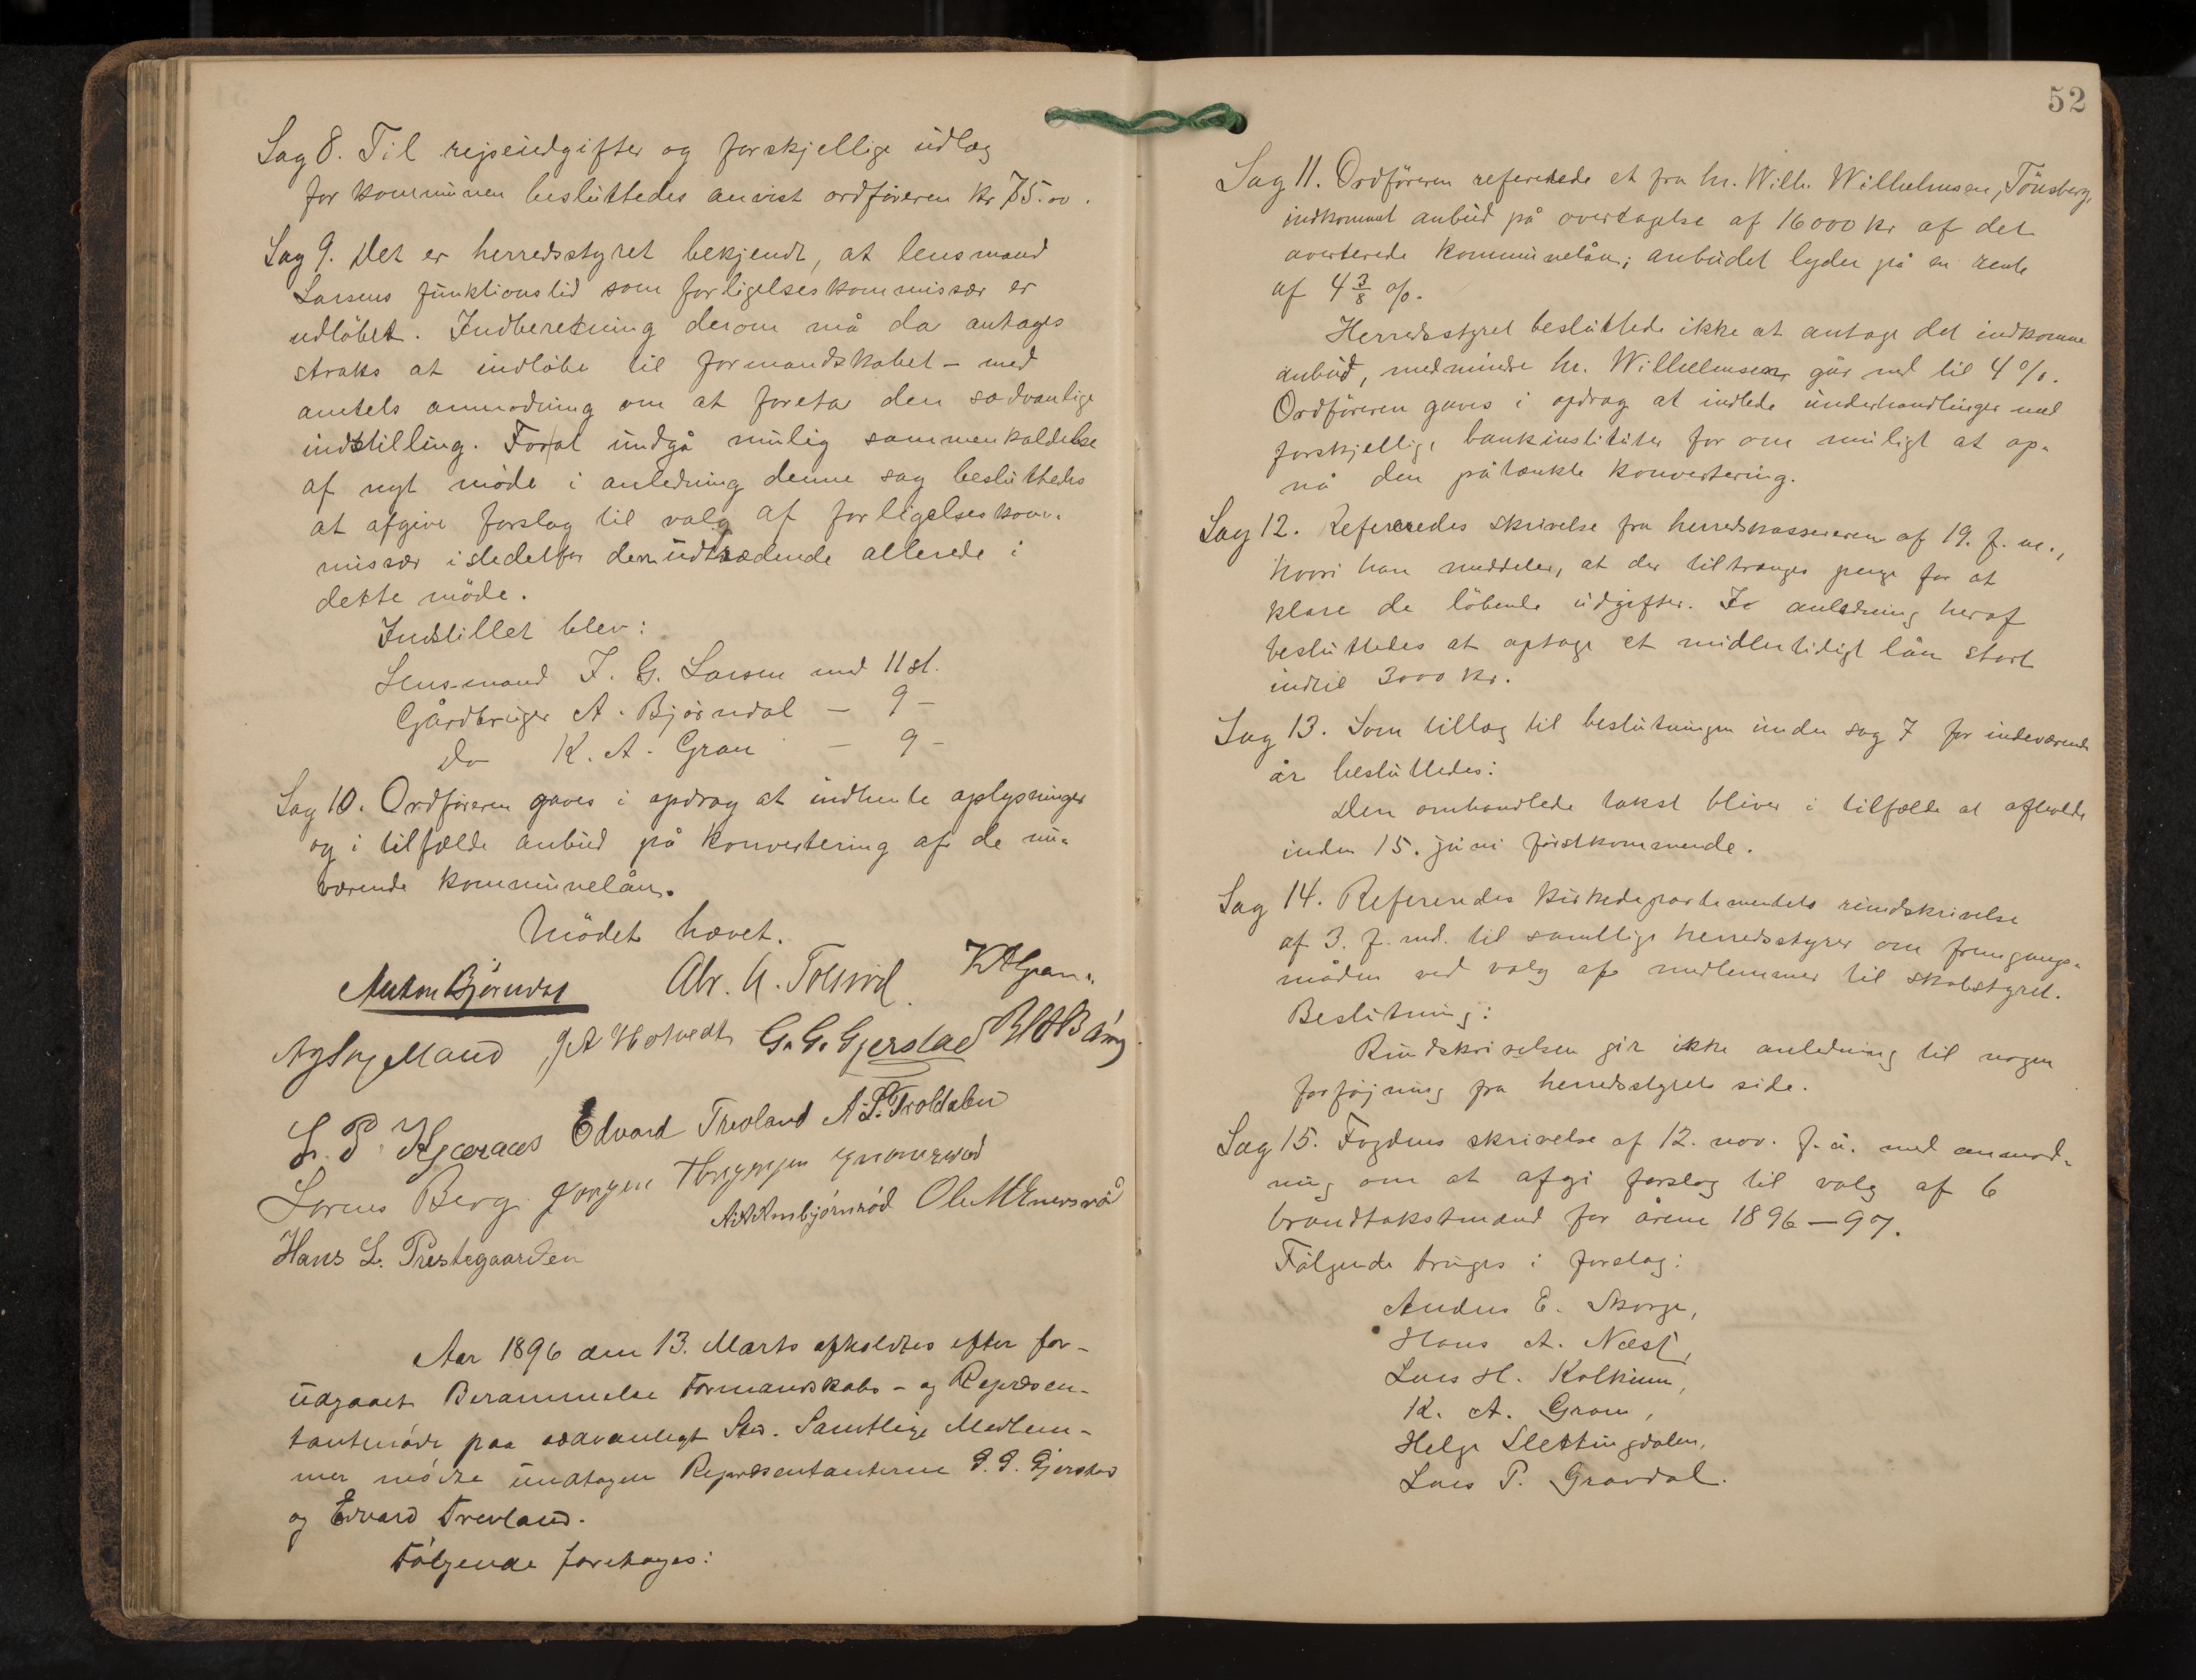 Sag 8. Til rejseudgifter og forskjellige udlæg
for kommunen besluttedes anvist ordföreren kr 75.00.
Sag 9. Det er herredsstyret bekjendt, at lensmand
Larsens funktionstid som forligelseskommissær er
udlöbet. Indberetning derom må da antages
straks at indlöbe til formandskabet – med
amtets anmodning om at foreta den sædvanlige
indstilling. For at undgå mulig sammenkaldelse
af nyt möde i anledning denne sag besluttedes
at afgive forslag til valg af forligelseskom-
missær istedetfor den udtrædende allerede i
dette möde.
Indstillet blev:
Lensmand J. G. Larsen med 11 st.
Gårdbruger A. Bjørndal – 9 –
do K. A. Gran – 9 –
Sag 10. Ordföreren gaves i opdrag at indhente oplysninger
og i tilfælde anbud på konvertering af de nu-
værende kommunelån.
Mödet hævet.
Anton Bjørndal Abr. K A Gran
J A Holtvedt G. G. Gjerstad
L. P. Edvard Trevland A. L. Troldsbu
Sørens Berg Jørgen
Hans L. Prestegaarden
Aar 1896 den 13. Marts afholdtes efter for-
udgaaet Berammelse Formandskabs- og Repræsen-
tantmöde paa sædvanligt Sted. Samtlige Medlem-
mer mödte undtagen Repræsentanterne G. G. Gjerstad
og Edvard Trevland.
Fölgende foretoges:
52
Sag 11. Ordföreren refererede et fra hr. Wilh. Wilhelmsen, Tönsberg,
indkommet anbud på overtagelse af 16000 kr af det
averterede kommunelån; anbudet lyder på en rente
af 4 3/8 %.
Herredsstyret besluttede ikke at antage det indkomne
anbud, medmindre hr. Wilhelmsen går ned til 4 %.
Ordföreren gaves i opdrag at indlede underhandlinger med
forskjellige bankinstituter for om muligt at op-
nå den påtænkte konvertering.
Sag 12. Refereredes skrivelse fra herredskassereren af 19. f. m.,
hvori han meddeler, at der tiltrænges penge for at
klare de löbende udgifter. I anledning heraf
besluttedes at optage et midlertidigt lån stort
indtil 3000 kr.
Sag 13. Som tillæg til beslutningen under sag 7 for indeværende
år besluttedes:
Den omhandlede takst bliver i tilfælde at afholde
inden 15. juni förstkommende.
Sag 14. Refereredes kirkedepartementets rundskrivelse
af 3. f. md. til samtlige herredsstyrer om fremgangs-
måden ved valg af medlemmer til skolestyret.
Beslutning:
Rundskrivelsen gir ikke anledning til nogen
forföjning fra herredsstyrets side.
Sag 15. Fogdens skrivelse af 12. nov. f. å. med anmod-
ning om at afgi forslag til valg af 6
brandtakstmænd for årene 1896–97.
Fölgende bringes i forslag:
Anders E. Skorge,
Hans A. Næst,
Lars H. Kolkinn,
K. A. Gran,
Helge Slettingdalen,
Lars P. Gravdal.